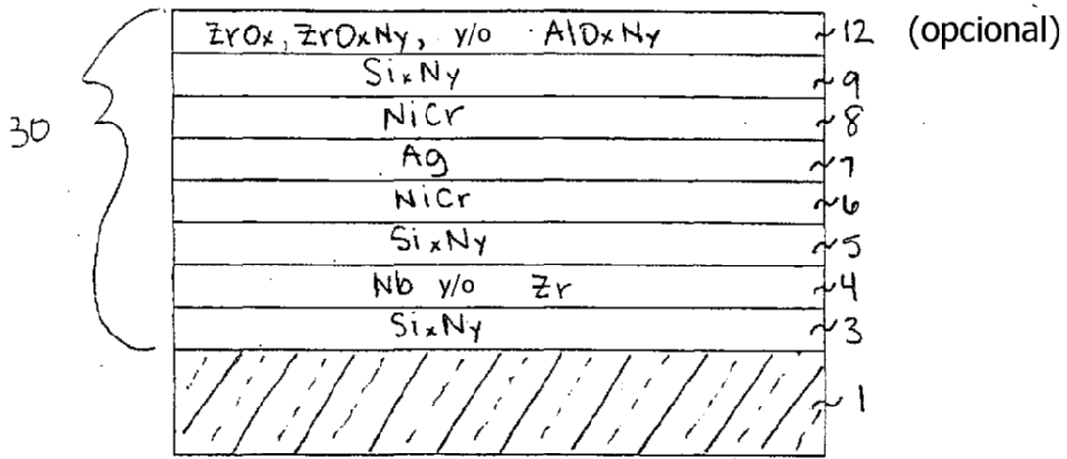 ZrOx, ZrOxNy, y/o AlOxNy 12 (opcional)
SixNy 9
NiCr 8
30
Ag 7
NiCr 6
SixNy 5
Nb y/o Zr 4
SixNy 3
1